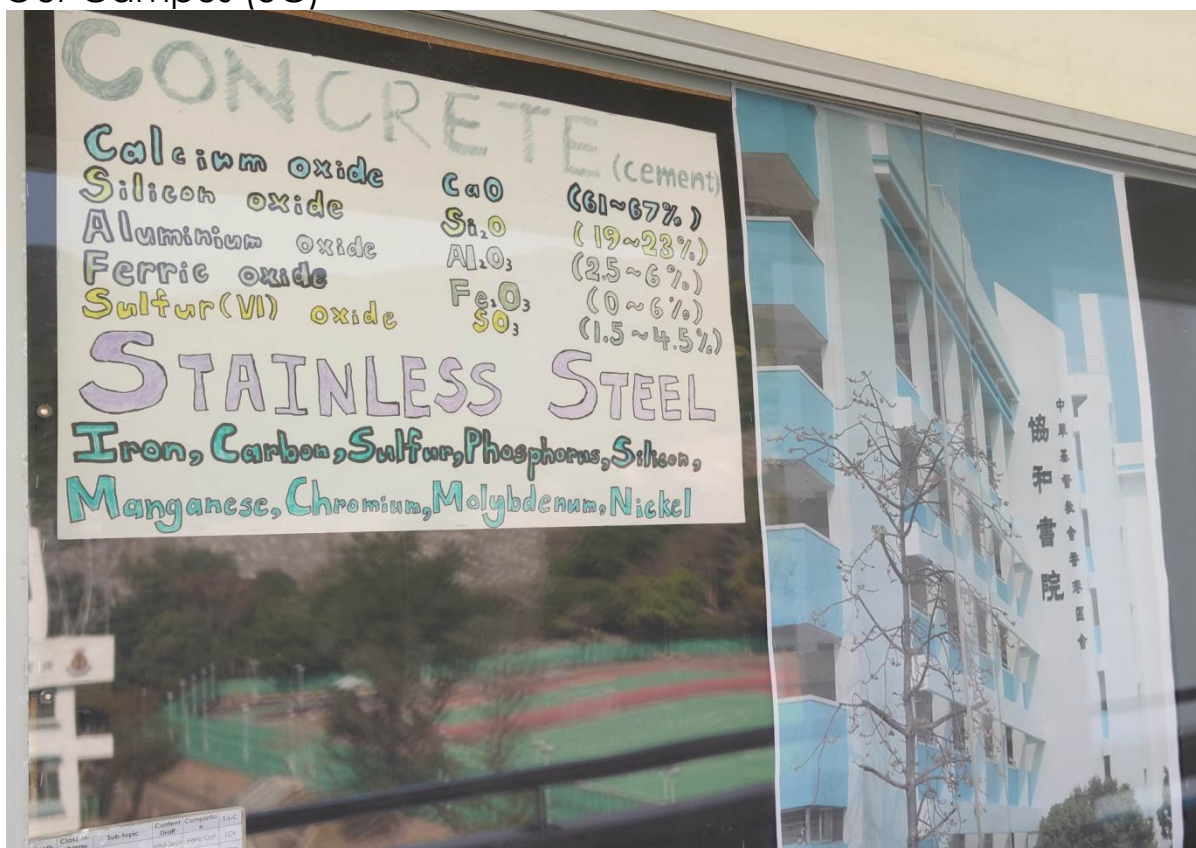 CONCRETE (cement)
Calcium oxide CaO (61~67%)
Silicon oxide Si₂O (19~23%)
Aluminium oxide Al₂O₃ (2.5~6%)
Ferric oxide Fe₂O₃ (0~6%)
Sulfur(VI) oxide SO₃ (1.5~4.5%)
STAINLESS STEEL
Iron, Carbon, Sulfur, Phosphorus, Silicon,
Manganese, Chromium, Molybdenum, Nickel
中華基督教會香港區會
協和書院
Sub-topic Content Draft